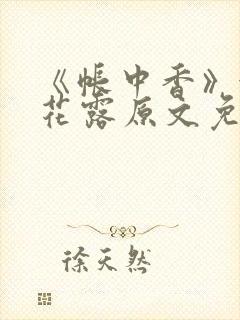 《帐中香》
花露原文免
徐天然